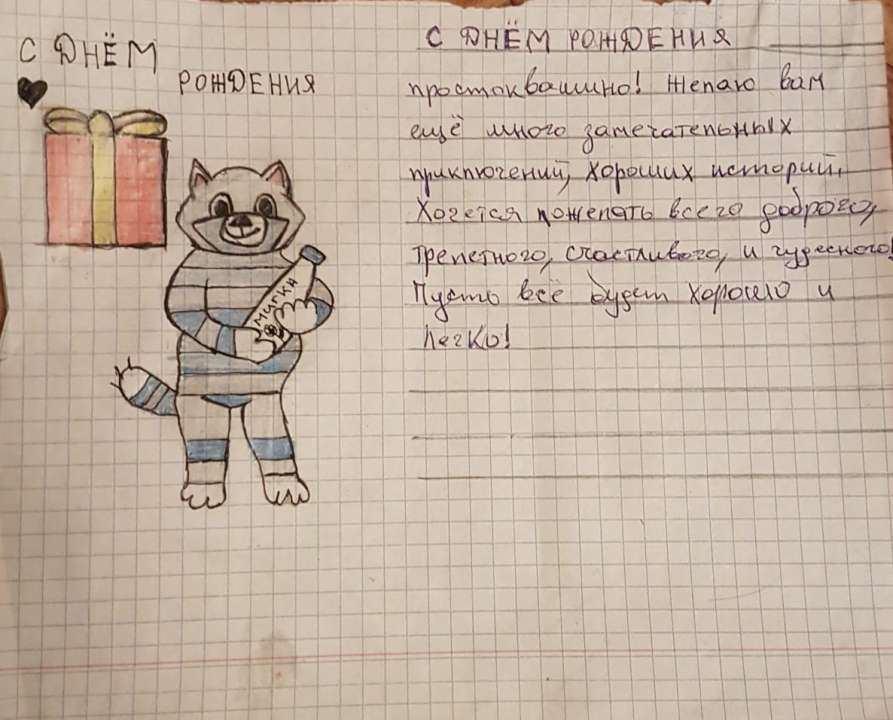 С ДНЁМ
РОЖДЕНИЯ
МИЛКА
С ДНЁМ РОЖДЕНИЯ
простоквашино! Желаю вам
ещё много замечательных
приключений, хороших историй,
Хочется пожелать всего доброго,
трепетного, счастливого, и чудесного!
Пусть всё будет хорошо и
легко!